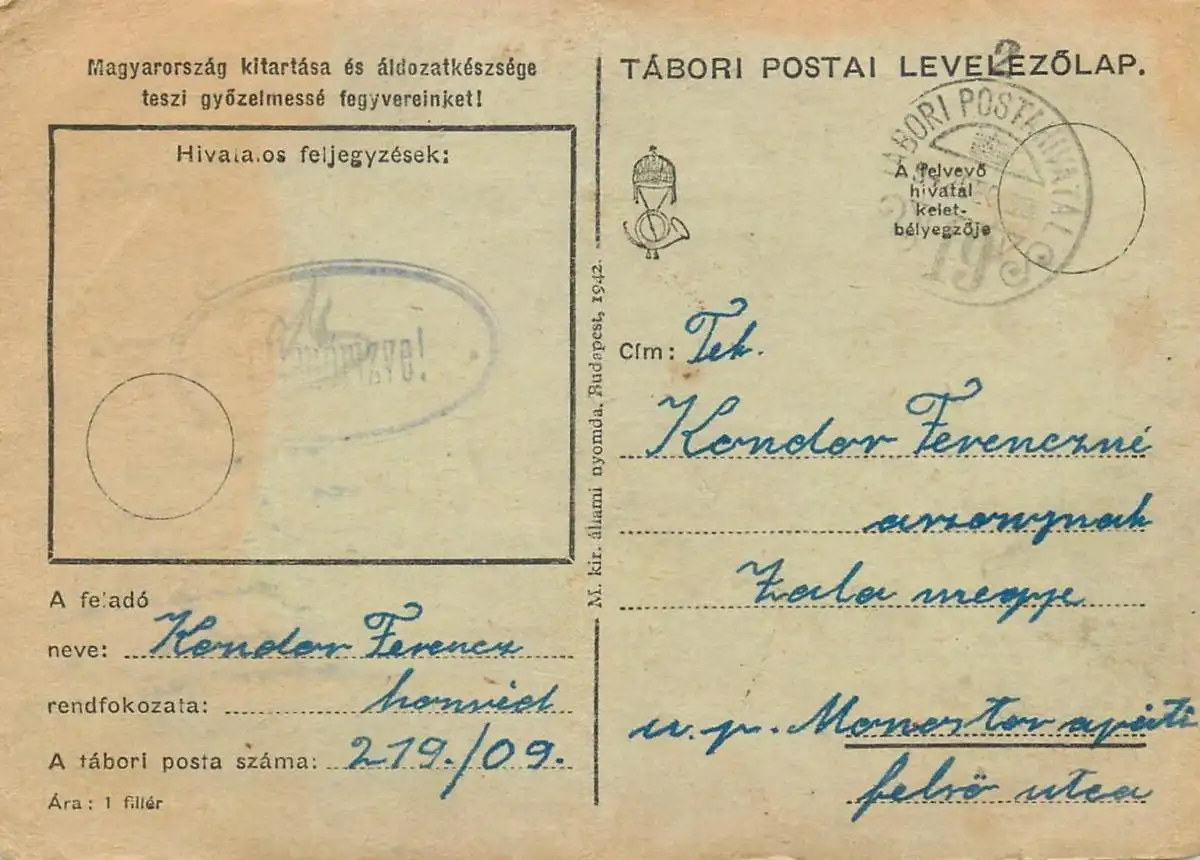 Magyarország kitartása és áldozatkészsége
teszi győzelmessé fegyvereinket!
Hivatalos feljegyzések:
A feladó
neve: Kondor Ferencz
rendfokozata: honvéd
A tábori posta száma: 219./09.
Ára: 1 fillér
M. kir. állami nyomda, Budapest, 1942.
TÁBORI POSTAI LEVELEZŐLAP.
2
TÁBORI POSTAHIVATAL
A felvevő
hivatal
kelet-
bélyegzője
Cím: Tek.
Kondor Ferenczné
asszonynak
Zala megye
u. p. Monostorapáti
felső utca